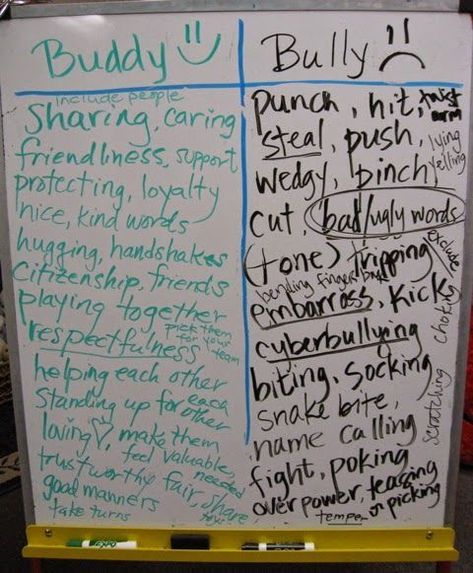 Buddy
include people
Sharing, caring
friendliness, support
protecting, loyalty
nice, kind words
hugging, handshakes
Citizenship, friends
playing together
respectfulness
pick them
for your
team
helping each other
Standing up for each
other
loving, make them
feel valuable,
needed
trustworthy fair, share
toys
good manners
take turns
Bully
punch, hit, twist
arm
steal, push,
lying
yelling
wedgy, pinch,
cut, bad/ugly words
(tone) tripping
exclude
bending fingers back
embarrass, kick
choking
cyberbullying
biting, socking
scratching
snake bite,
name calling
fight, poking
over power, teasing
temper
or picking
EXPO